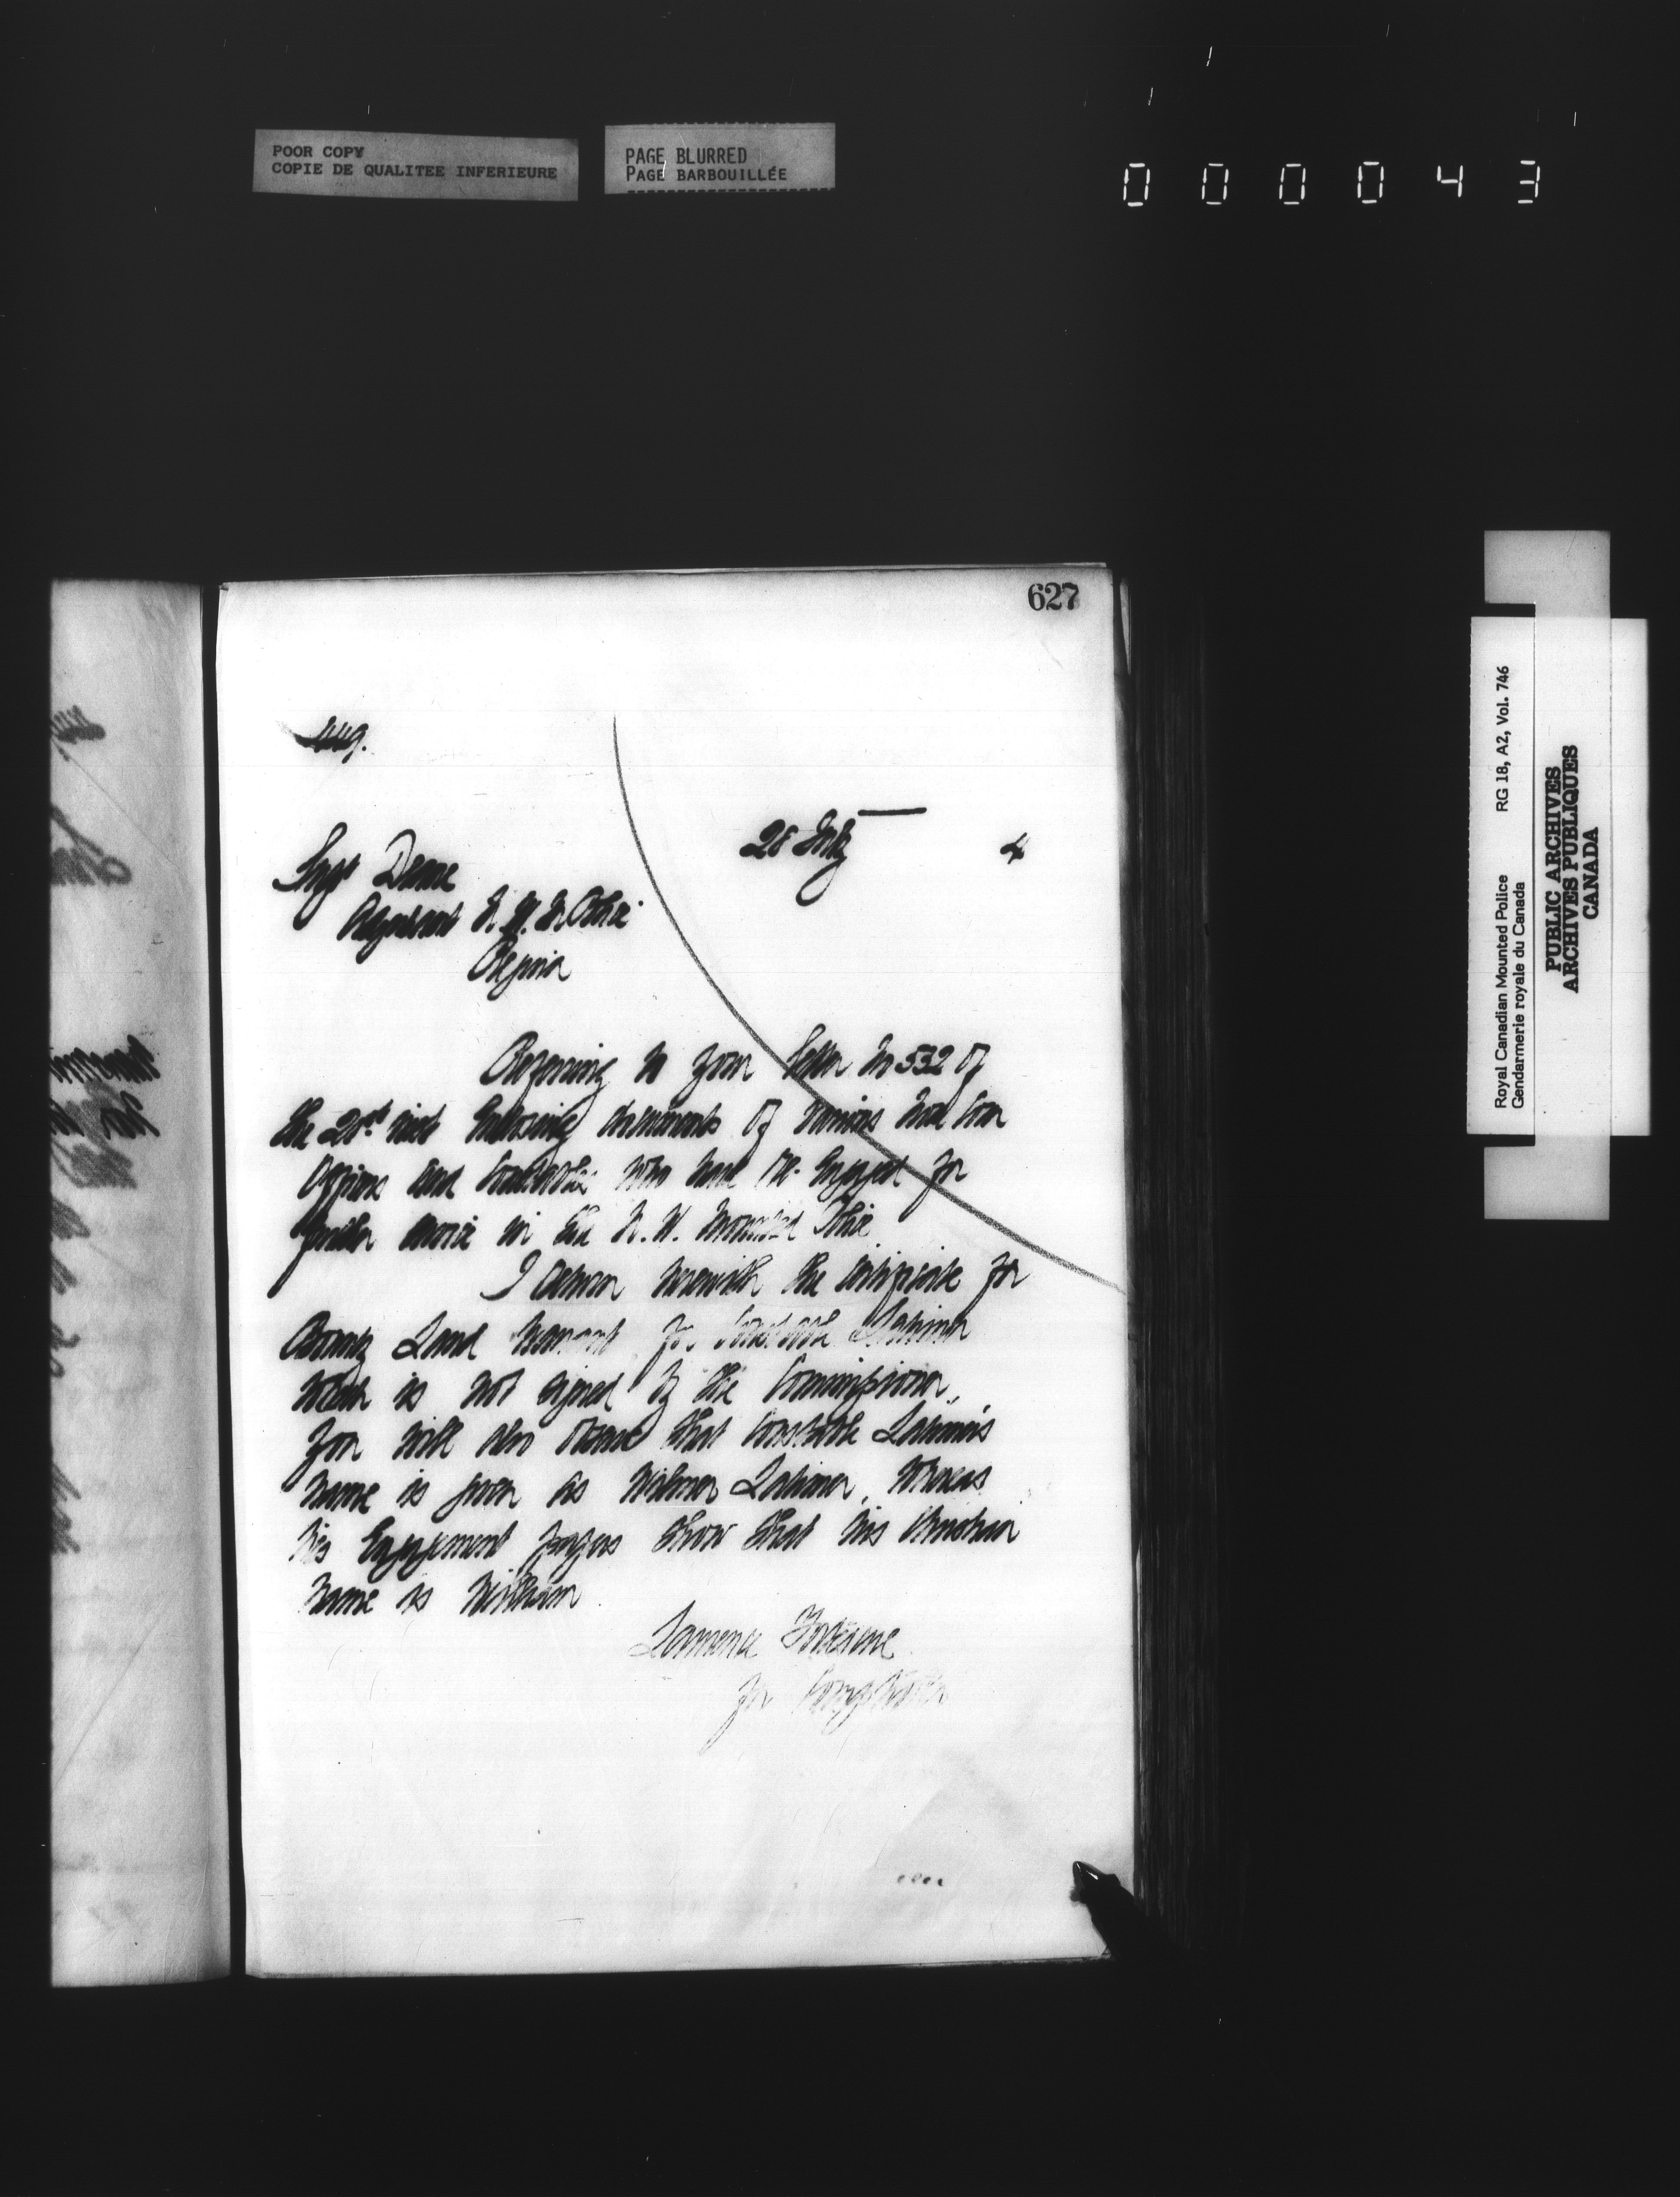 POOR COPY
COPIE DE QUALITEE INFERIEURE
PAGE BLURRED
PAGE BARBOUILLÉE
000043
627
28 July 4
Supt Deane
Adjutant N. W. M. Police
Regina
Referring to your letter No 532 of
the inst enclosing documents of various Non Com
Officers and Constables who have re-engaged for
further service in the N. W. Mounted Police
I return herewith the certificate for
Bounty Land Warrant for Constable Latimer
which is not signed by the Commissioner,
You will also observe that Constable Latimer's
name is given as Wilmer Latimer, Whereas
his Engagement papers show that his Christian
name is William.
Fortescue
for Comptroller
Royal Canadian Mounted Police RG 18, A2, Vol. 746
Gendarmerie royale du Canada
PUBLIC ARCHIVES
ARCHIVES PUBLIQUES
CANADA